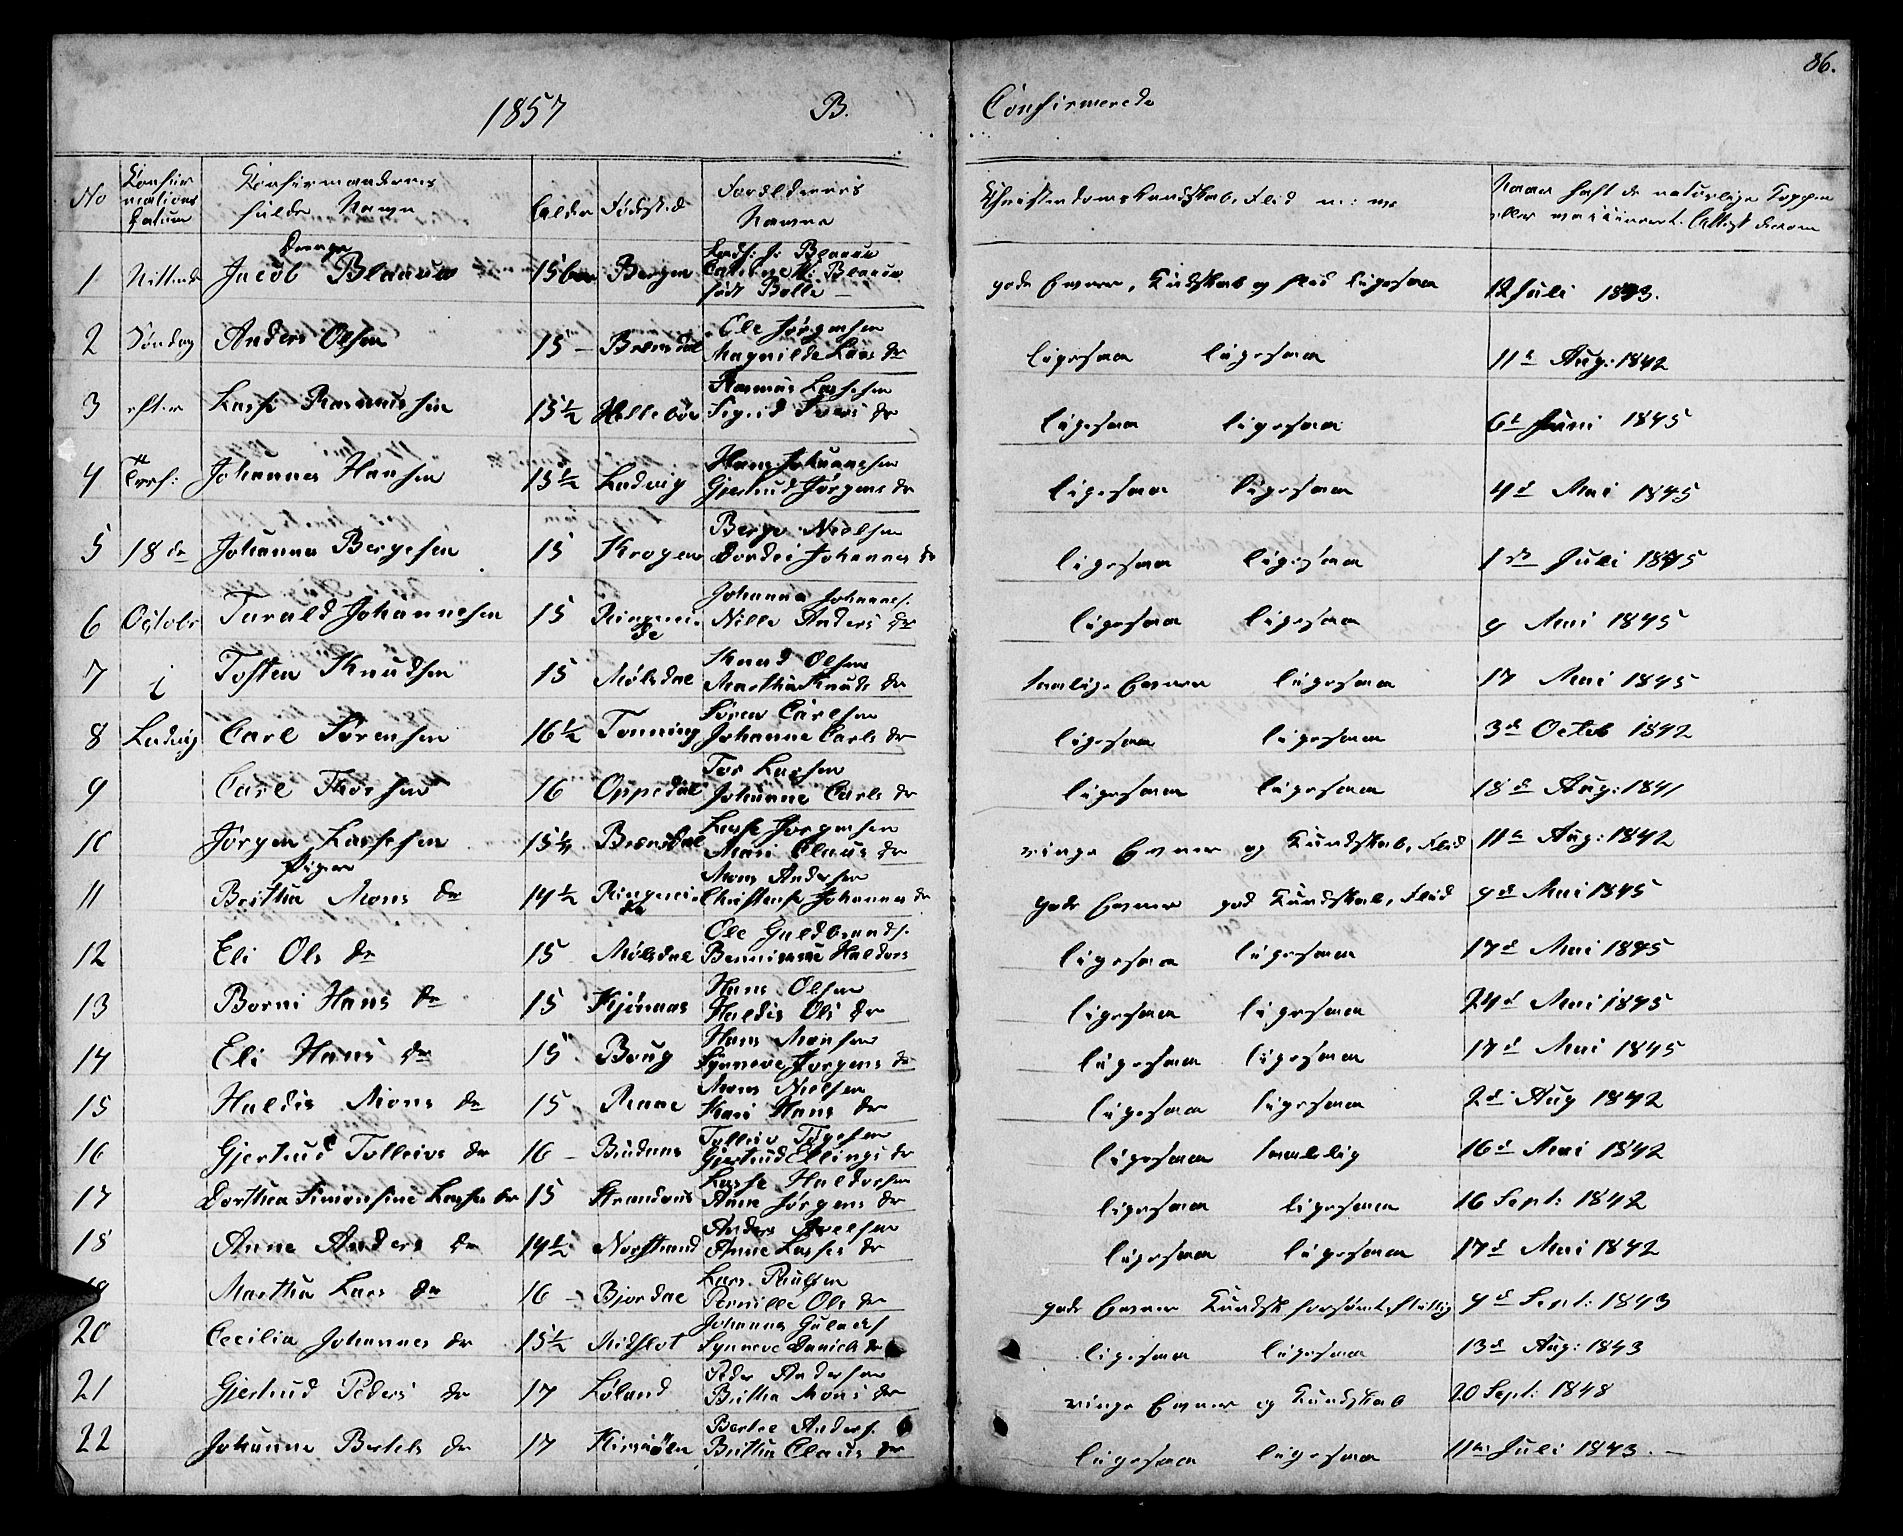 86.
1857 B. Confirmerede
No Confirmations Datum Confirmandernes fulde Navn Alder Fødested Forældrenes Navne Christendomskundskab, Flid m: m: Naar haft de naturlige Kopper eller vaccineret. Attest derom
Drenge
1 Nittende Jacob Blaauw 15 Bergen J: Blaauw Blaauw født Bolle gode Evner, Kundskab og Flid ligesaa 12 Juli 1843.
2 Søndag Anders Olsen 15 - Brænsdal Ole Jørgensen Magnilde Lars dr ligesaa ligesaa 11te Aug: 1842
3 efter Lasse Rasmussen 15½ Hellebøe Rasmus Lassesen Sigrid Ivers dr ligesaa ligesaa 6te Juni 1845
4 Tref: Johannes Hansen 15½ Ladvig Hans Johannesen Gjertrud Jørgens dr ligesaa ligesaa 4d Mai 1845
5 18de Johannes Bergesen 15 Krogen Berge Nielsen Dordei Johannes dr ligesaa ligesaa 1ste Juli 1845
6 October Tarald Johannesen 15 Ringereide Johannes Johannes: Nille Anders dr ligesaa ligesaa 9 Mai 1845
7 i Tosten Knudsen 15 Mølsdal Knud Olsen Martha Knuds dr temlige Evner ligesaa 17 Mai 1845
8 Ladvig Carl Sørensen 16½ Tonning Søren Carlsen Johanne Carls dr ligesaa ligesaa 3d Octob 1842
9 Carl Thorsen 16 Oppedal Tor Lassen Johanne Carls dr ligesaa ligesaa 18d Aug: 1841
10 Jørgen Lassesen 15¼ Brænsdal Lasse Jørgensen Mari Claus dr ringe Evner og Kundskab, Flid 11te Aug: 1842
Piger
11 Britha Mons dr 14½ Ringereide Mons Andersen Christense Johannes dr gode Evner god Kundskab, Flid 9d Mai 1845
12 Eli Ols dr 15 Mølsdal Ole Guldbrands: Haldors ligesaa ligesaa 17d Mai 1845
13 Borni Hans dr 15 Hans Olsen Haldis Ols dr ligesaa ligesaa 24d Mai 1845
14 Eli Hans dr 15 Boug Hans Monsen Synneve Jørgens dr ligesaa ligesaa 17d Mai 1845
15 Haldis Mons dr 15 Mons Nielsen Kari Hans dr ligesaa ligesaa 2d Aug 1842
16 Gjertrud Tolleivs dr 16 - Tolleiv Gjertrud Ellings dr ligesaa temlelig 16d Mai 1842
17 Dorthea Simonsine Lasse dr 15 Strandnæs Lasse Haldorsen Anne Jørgens dr ligesaa ligesaa 16 Sept: 1842
18 Anne Anders dr 14½ Norstrand Anders Anne Lasses dr ligesaa ligesaa 17d Mai 1842
19 Martha Lars dr 16 - Bjordal Lars Pernille Ols dr gode Evner Kundsk forsømt flittig 9d Sept: 1843
20 Cecilia Johannes dr 15½ Ridslot Johannes Synneve Daniels dr ligesaa ligesaa 13d Aug: 1843
21 Gjertrud Peders dr 17 Løland Peder Andersen Britha Mons dr ringe Evner og Kundskab 20 Sept: 1848
22 Johanne Bertels dr 17 Bertel Anders: Britha Claus dr ligesaa ligesaa 11te Juli 1843. -